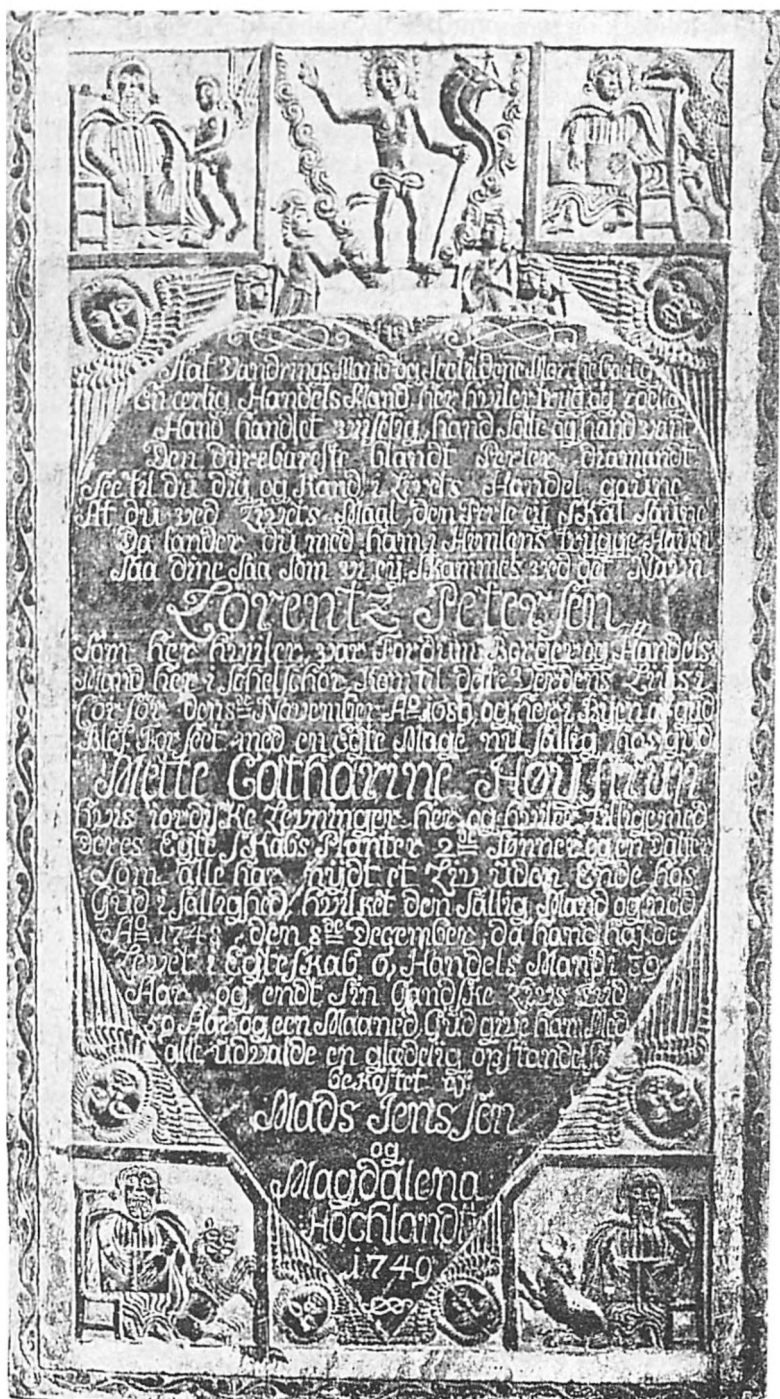 Stat Vandrings Mand og See
En ærlig Handels Mand her hviler tryg og
Hand handlet hand Solte og hand vant
Den dyrebareste blandt Perler diamandt
See til du dig og Kand i Livets Handel
At du ved Livets Maal, den Perle eij skal Saune
Da lander du med ham i Himlens trygge Havn
Saa dine Saa Som vi eij Skammes ved Navn
Lorentz Petersen
Som her hviler, var Fordum Borger og Handels
Mand her i Schelschör, Kom til dette Verdens Lius i
Corsör dens November Aº 1689, og her i Bijen af gud
Blef Forseet med en Egte Mage nu Sallig hos gud
Mette Catharine Høustrup
hvis iordiske Levninger her og hviler tilligemed
Deres Egteskabs Planter 2de Sønner og en Datter
Som alle har nijdt et Liv uden Ende hos
Gud i Sallighed, hvilket den Sallig Mand og nød
Aº 1748, den 8de December, da hand hafde
Levet i Egteskab 6, Handels Mand i
Aar, og endt Sin Gandske Livs tiid
59 Aar og een Maaned Gud give ham Med
alle udvalde en glædelig opstandelse
bekostet af
Mads Jenssøn
og
Magdalena
Hochlandt
1749